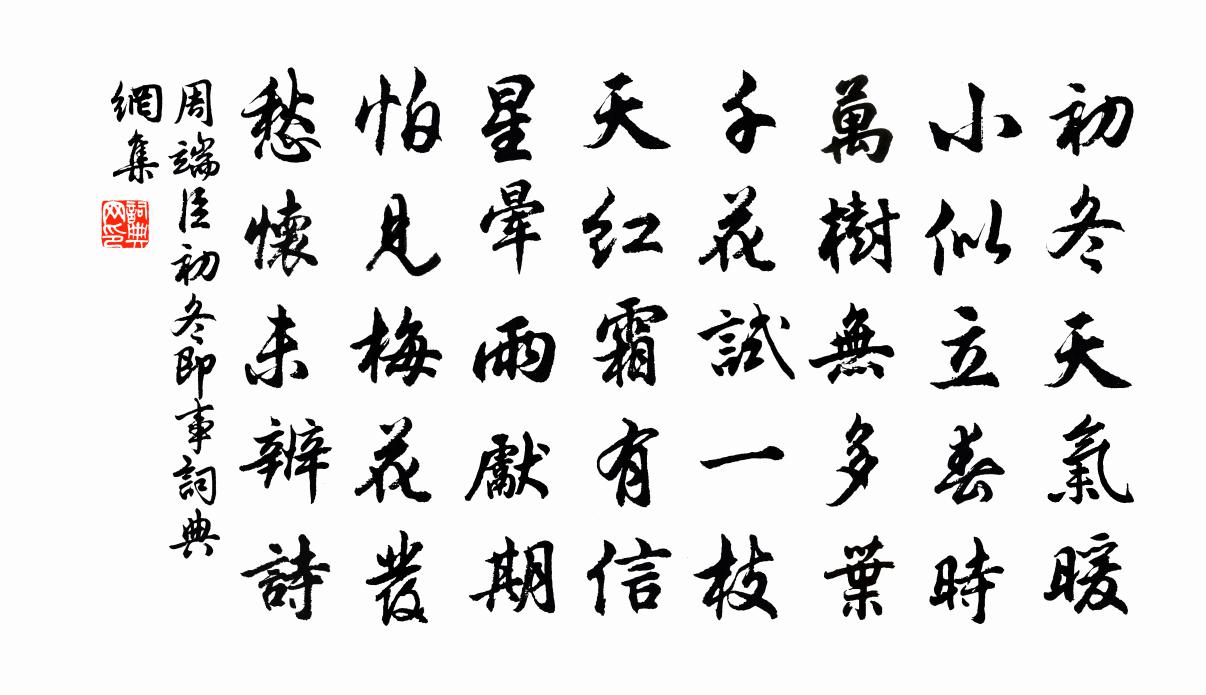 初冬天氣暖
小似立春時
萬樹無多葉
千花試一枝
天紅霜有信
星暈雨獻期
怕見梅花發
愁懷未辦詩
周端臣初冬即事詞典
網集
詞典網印